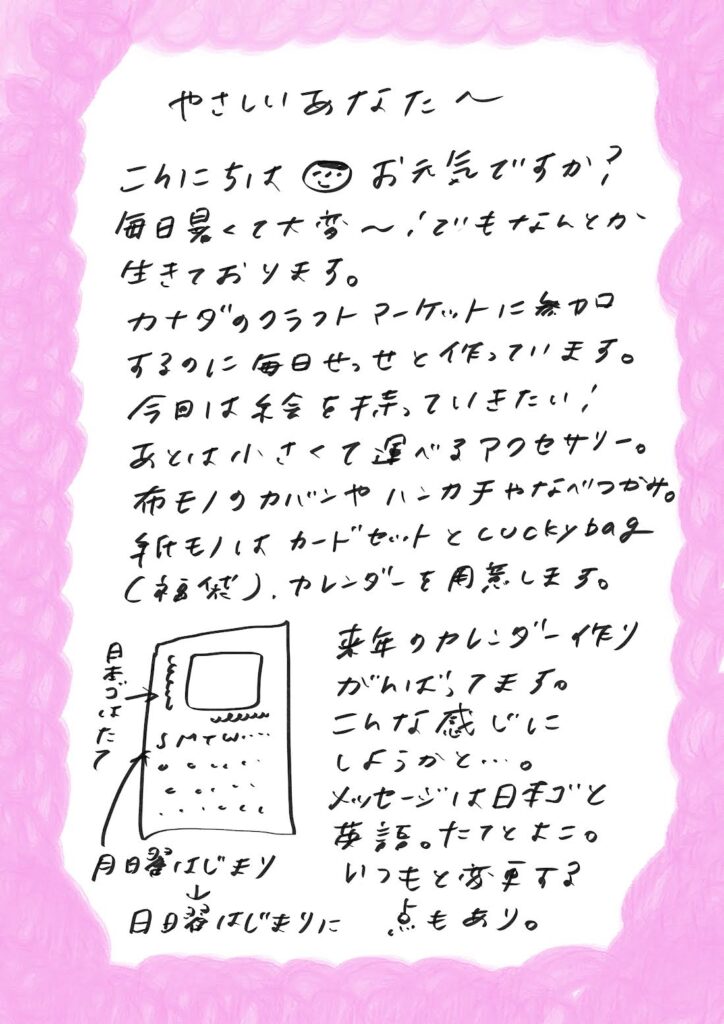 やさしいあなたへ
こんにちは お元気ですか?
毎日暑くて大変〜!でもなんとか
生きております。
カナダのクラフトマーケットに参加
するのに毎日せっせと作っています。
今回は絵を持っていきたい!
あとは小さくて運べるアクセサリー。
布モノのカバンやハンカチやなべつかみ。
紙モノはカードセットとluckybag
(福袋)、カレンダーを用意します。
来年のカレンダー作り
がんばってます。
こんな感じに
しようかと…。
メッセージは日本ゴと
英語。たてとよこ。
いつもと変更する
点もあり。
日本ゴはたて
S M T W....
月日曜はじまり
↓
日日曜はじまりに